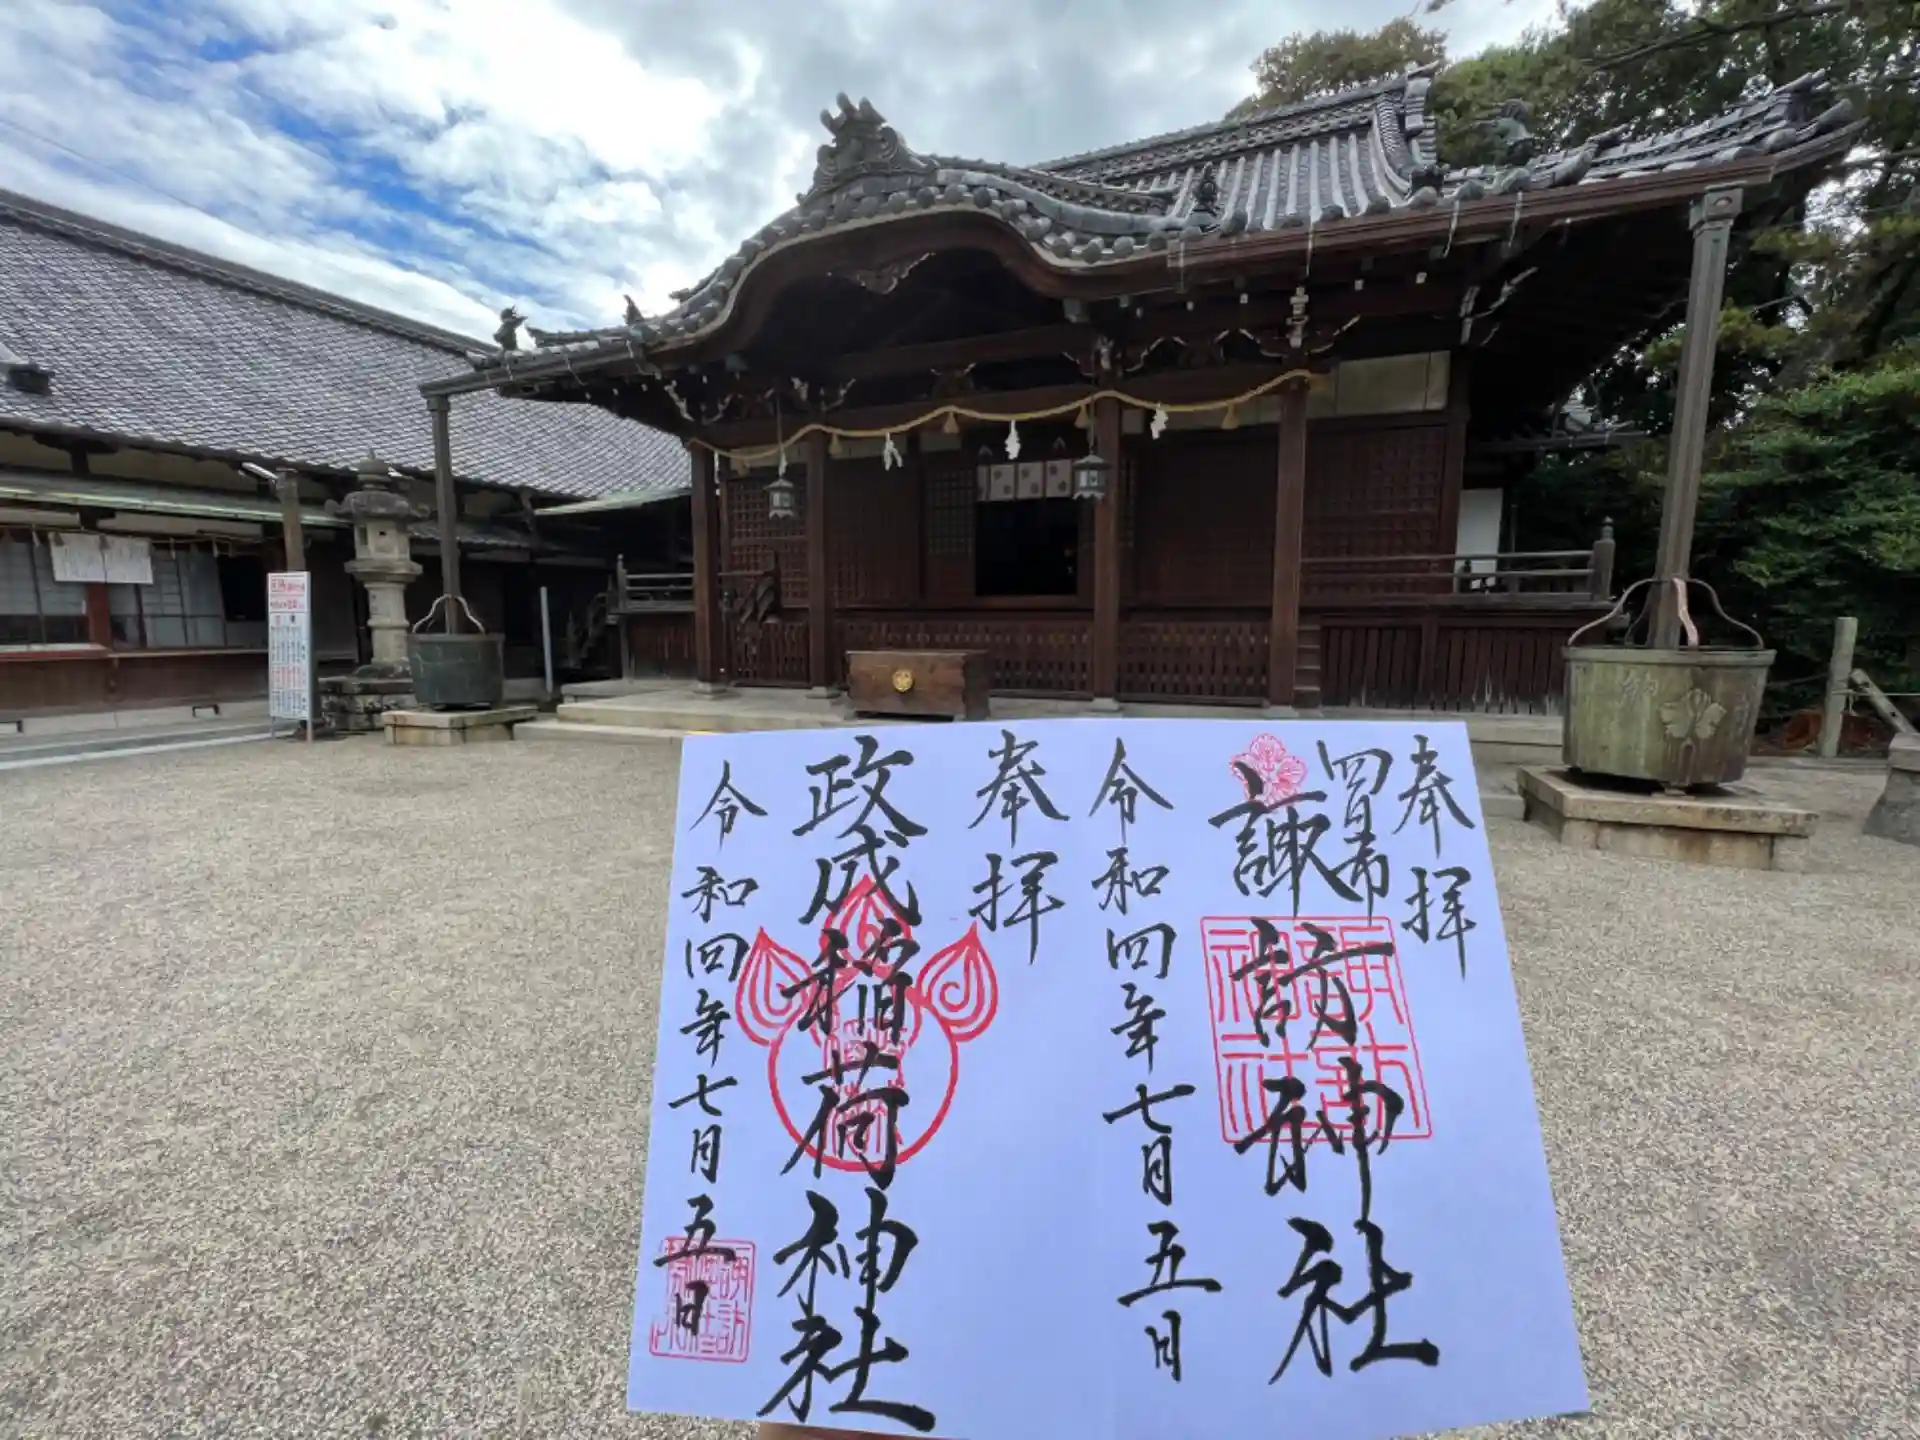 奉拝
四日市
諏訪神社
令和四年七月五日
奉拝
政成稲荷神社
令和四年七月五日
諏訪
神社